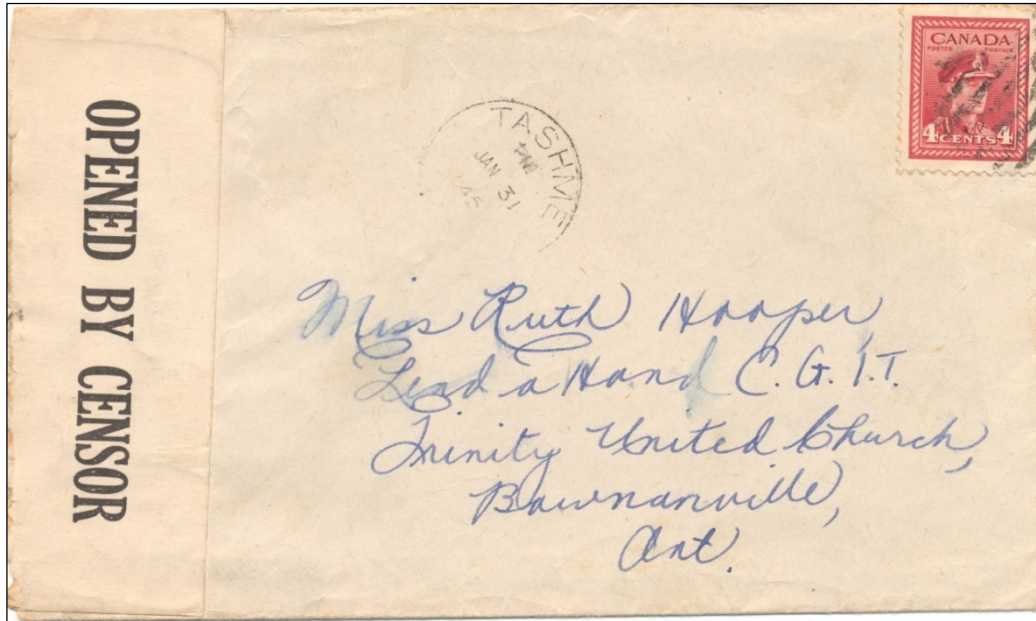 OPENED BY CENSOR
TASHME
PM
JAN 31
45
CANADA
POSTES POSTAGE
4 CENTS 4
Miss Ruth Hooper,
Lend a Hand C.G.I.T.
Trinity United Church,
Bowmanville,
Ont.